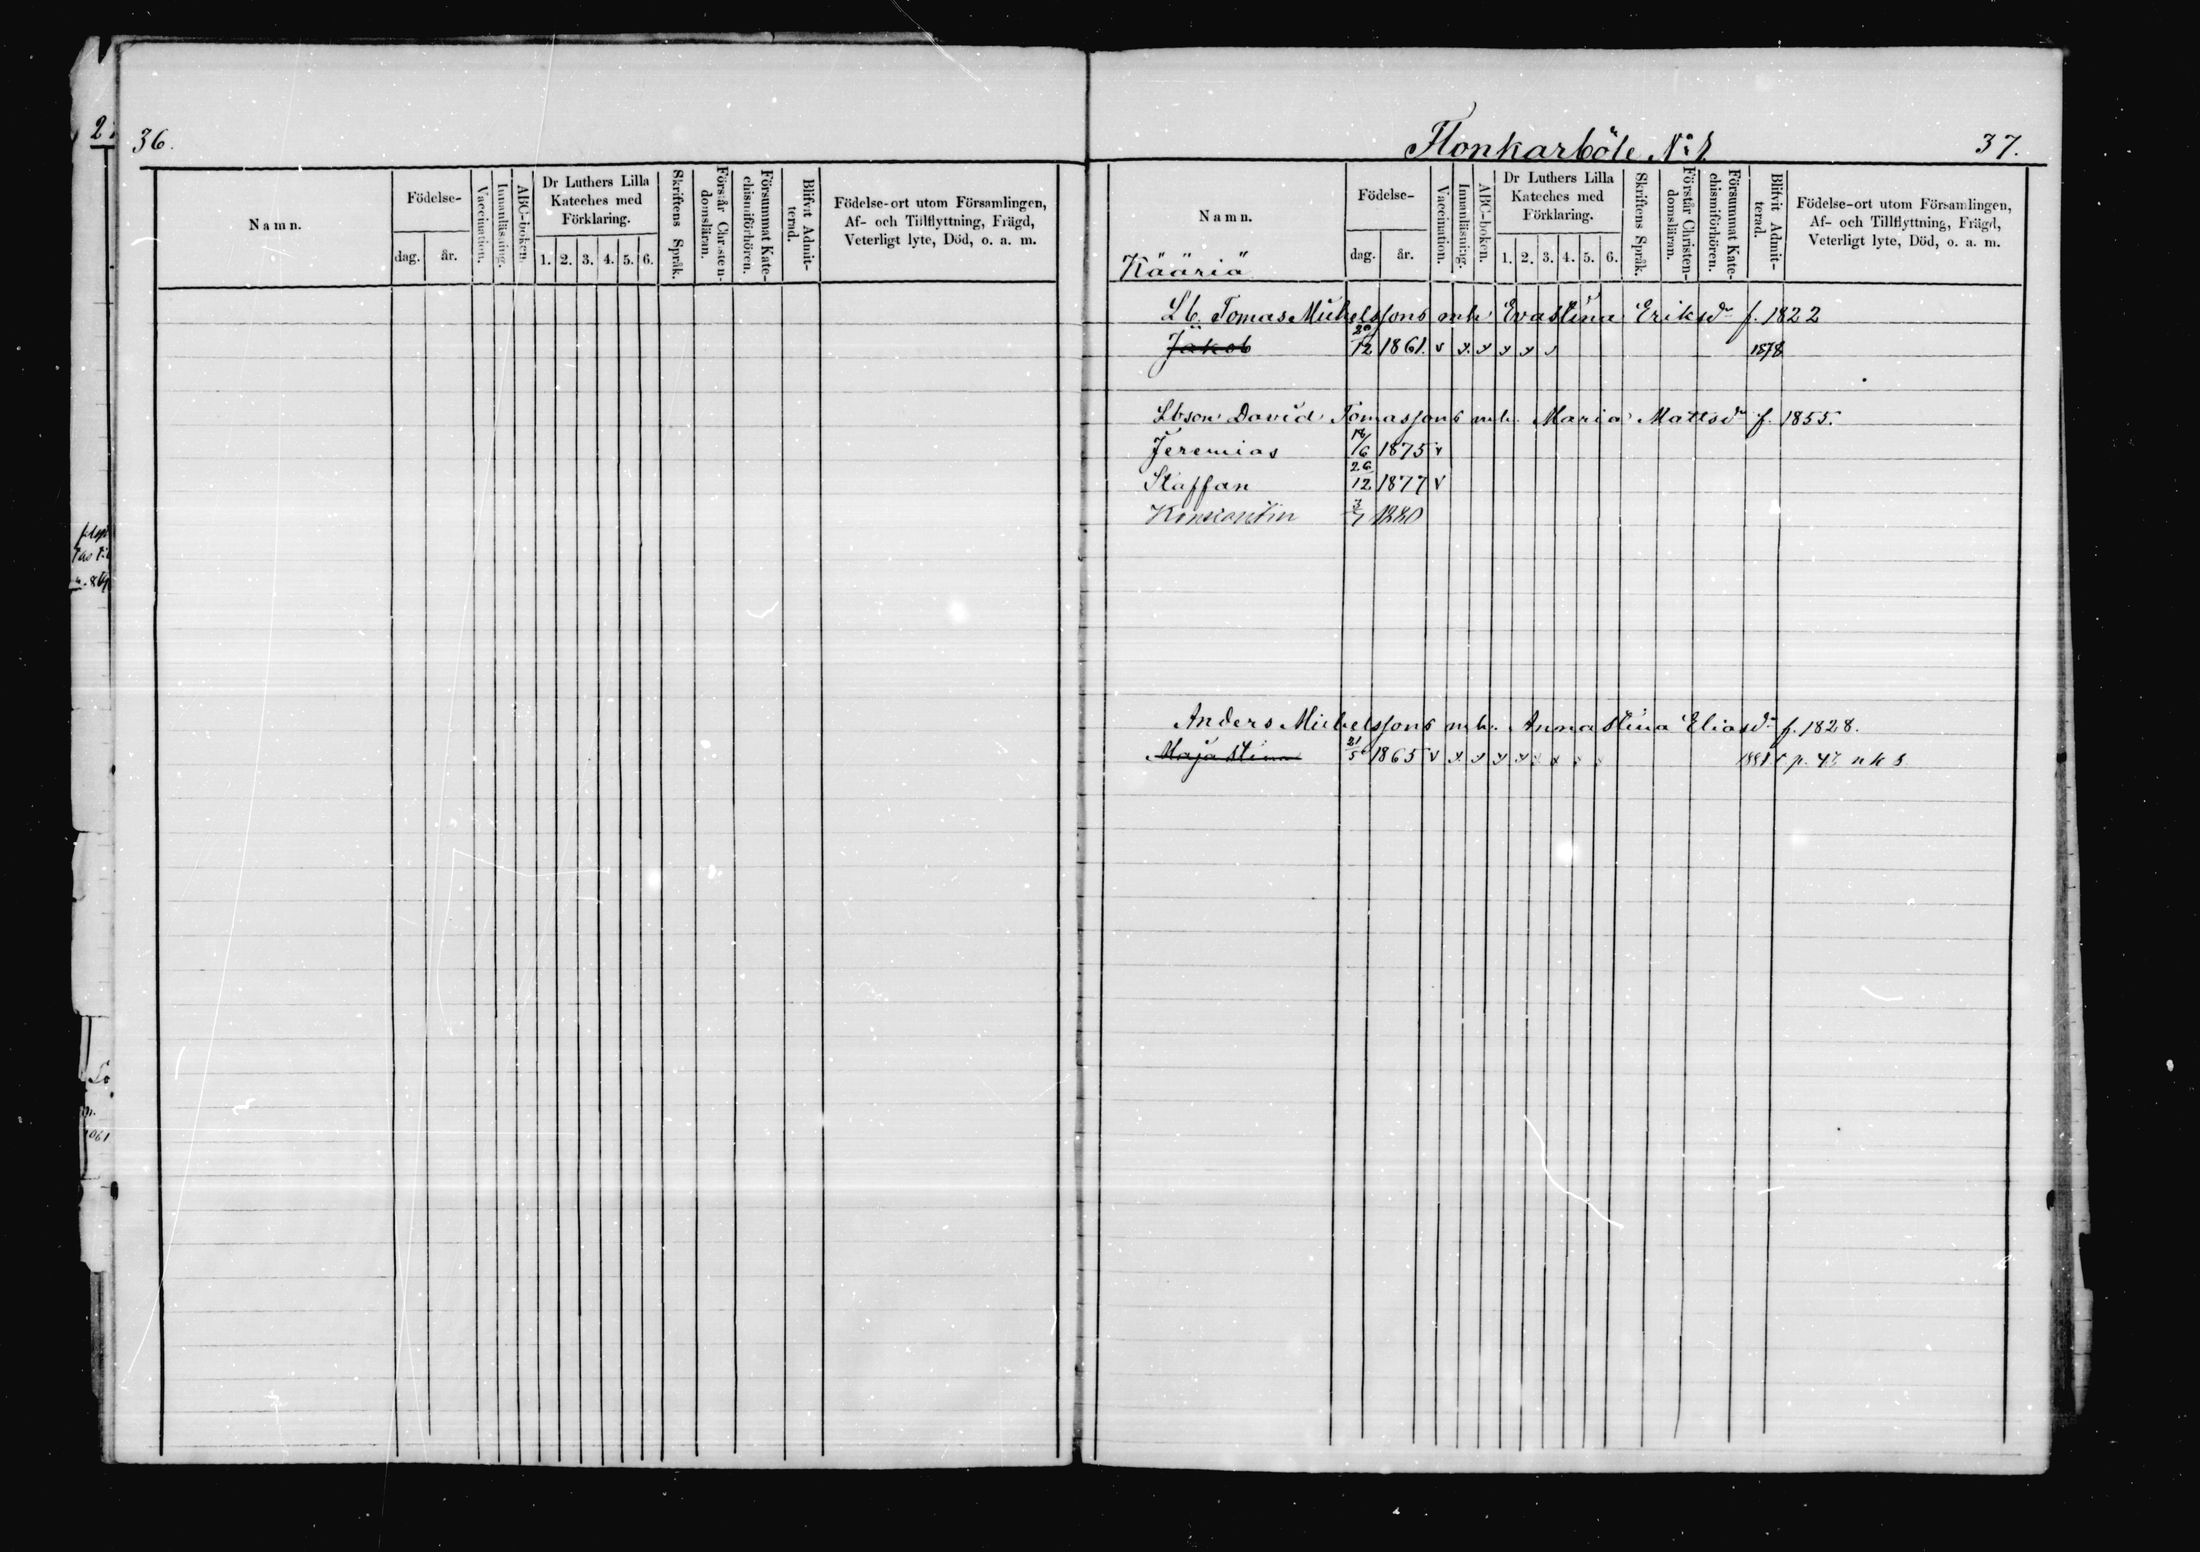 36.
Namn.
Födelse-
dag.
år.
Vaccination.
Innanläsning.
ABC-boken.
Dr Luthers Lilla
Kateches med
Förklaring.
1. 2. 3. 4. 5. 6.
Skriftens Språk.
Förstår Christen-
domsläran.
Försummat Kate-
chismiförhören.
Blifvit Admit-
terad.
Födelse-ort utom Församlingen,
Af- och Tillflyttning, Frägd,
Veterligt lyte, Död, o. a. m.
37.
Namn.
Födelse-
dag.
år.
Vaccination.
Innanläsning.
ABC-boken.
Dr Luthers Lilla
Kateches med
Förklaring.
1. 2. 3. 4. 5. 6.
Skriftens Språk.
Förstår Christen-
domsläran.
Försummat Kate-
chismiförhören.
Blifvit Admit-
terad.
Födelse-ort utom Församlingen,
Af- och Tillflyttning, Frägd,
Veterligt lyte, Död, o. a. m.
Kääriä
Lb. Tomas Michelssons Eva Stina Eriksdr f. 1822
Jakob 20/12 1861. v 1878
Lbson David Tomassons Maria Mattsdr f. 1855.
Jeremias 1875 v
Staffan 26/12 1877 v
Konstantin 1880
Anders Michelssons Anna Stina Eliasdr f. 1828.
Maja Stina 21/5 1865 v